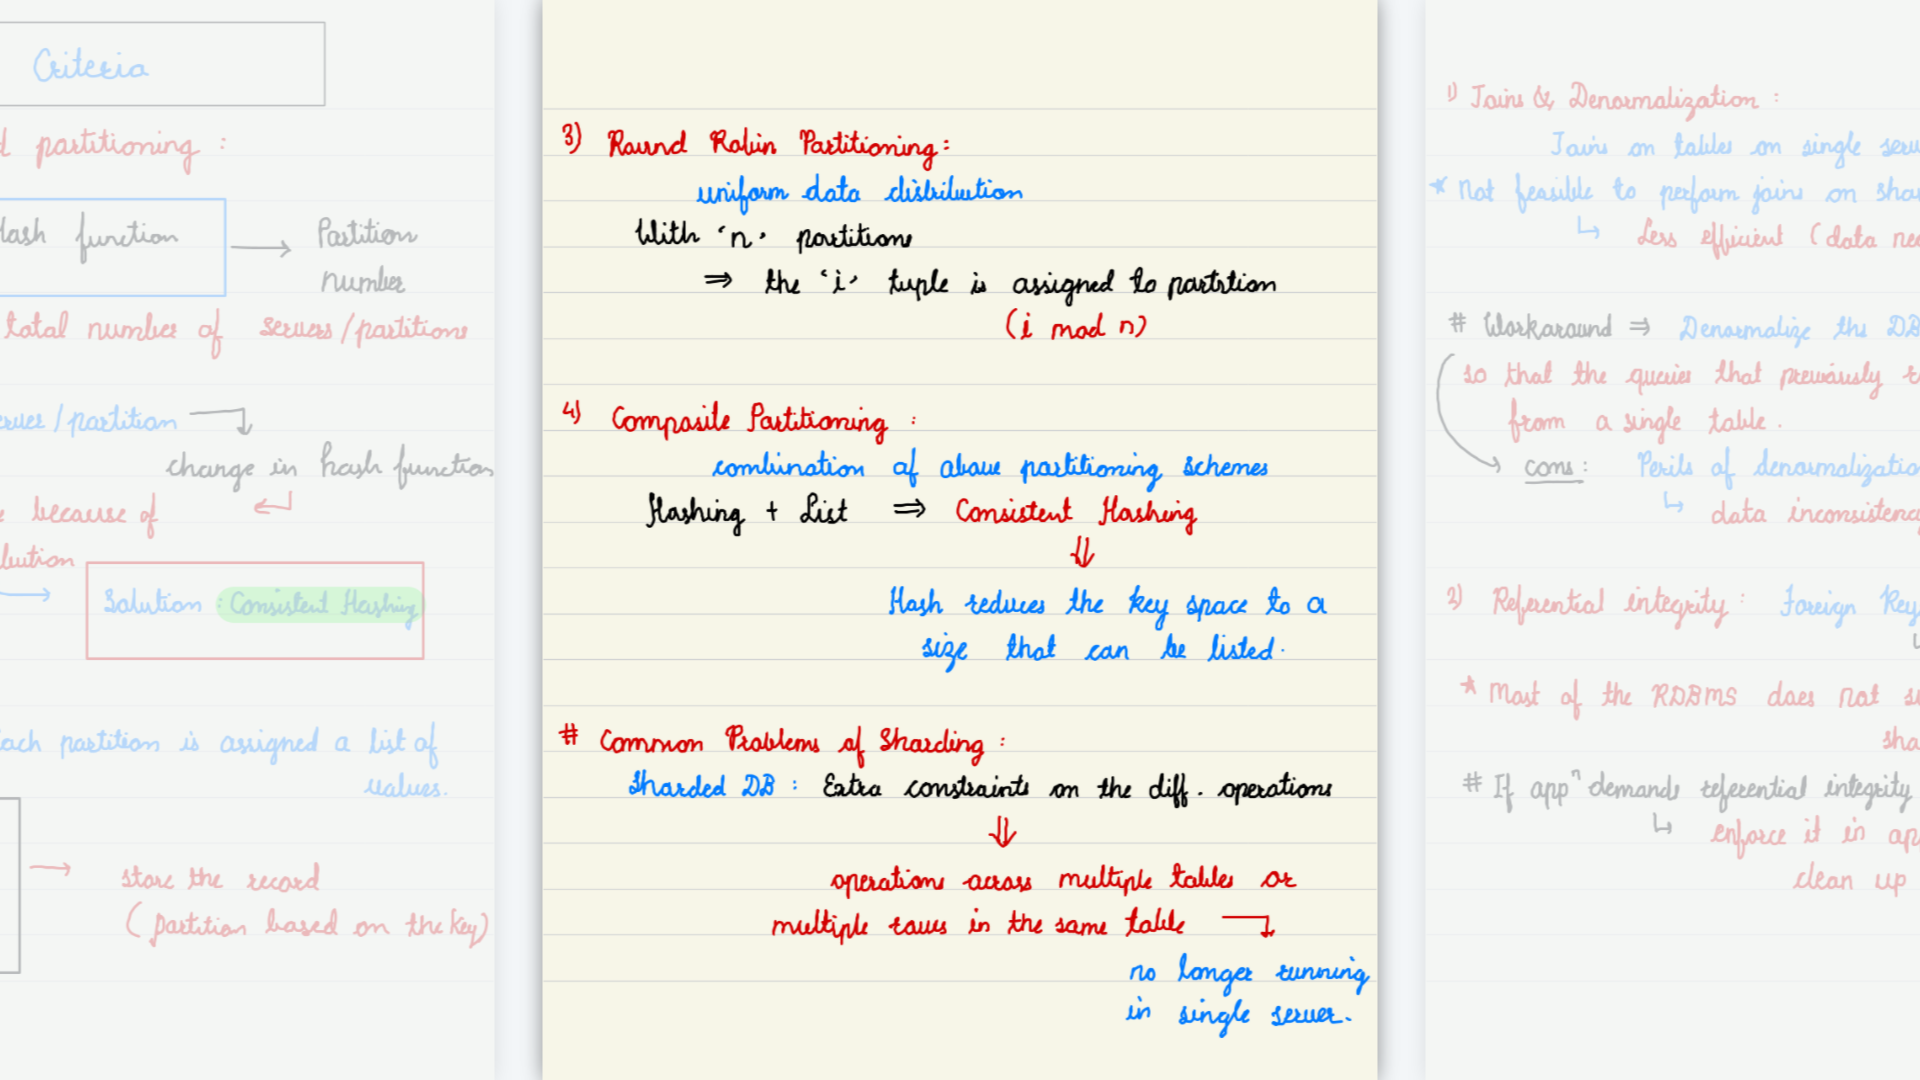 Criteria
d partitioning :
Hash function → Partition
number
total number of servers/partitions
server/partition
change in hash function
e because of
bution
→ Solution : Consistent Hashing
Each partition is assigned a list of
values.
→ store the record
( partition based on the key)
3) Round Robin Partitioning :
uniform data distribution
With 'n' partitions
⇒ the 'i' tuple is assigned to partition
(i mod n)
4) Composite Partitioning :
combination of above partitioning schemes
Hashing + List ⇒ Consistent Hashing
⇓
Hash reduces the key space to a
size that can be listed.
# Common Problems of Sharding :
Sharded DB : Extra constraints on the diff. operations
⇓
operations across multiple tables or
multiple rows in the same table
no longer running
in single server.
1) Joins & Denormalization :
Joins on tables on single serv
* Not feasible to perform joins on shar
↳ Less efficient (data nee
# Workaround ⇒ Denormalize the DB
so that the queries that previously r
from a single table.
cons : Perils of denormalization
↳ data inconsistency
2) Referential integrity : Foreign Key
* Most of the RDBMS does not su
sha
# If appⁿ demands referential integrity
↳ enforce it in app
clean up